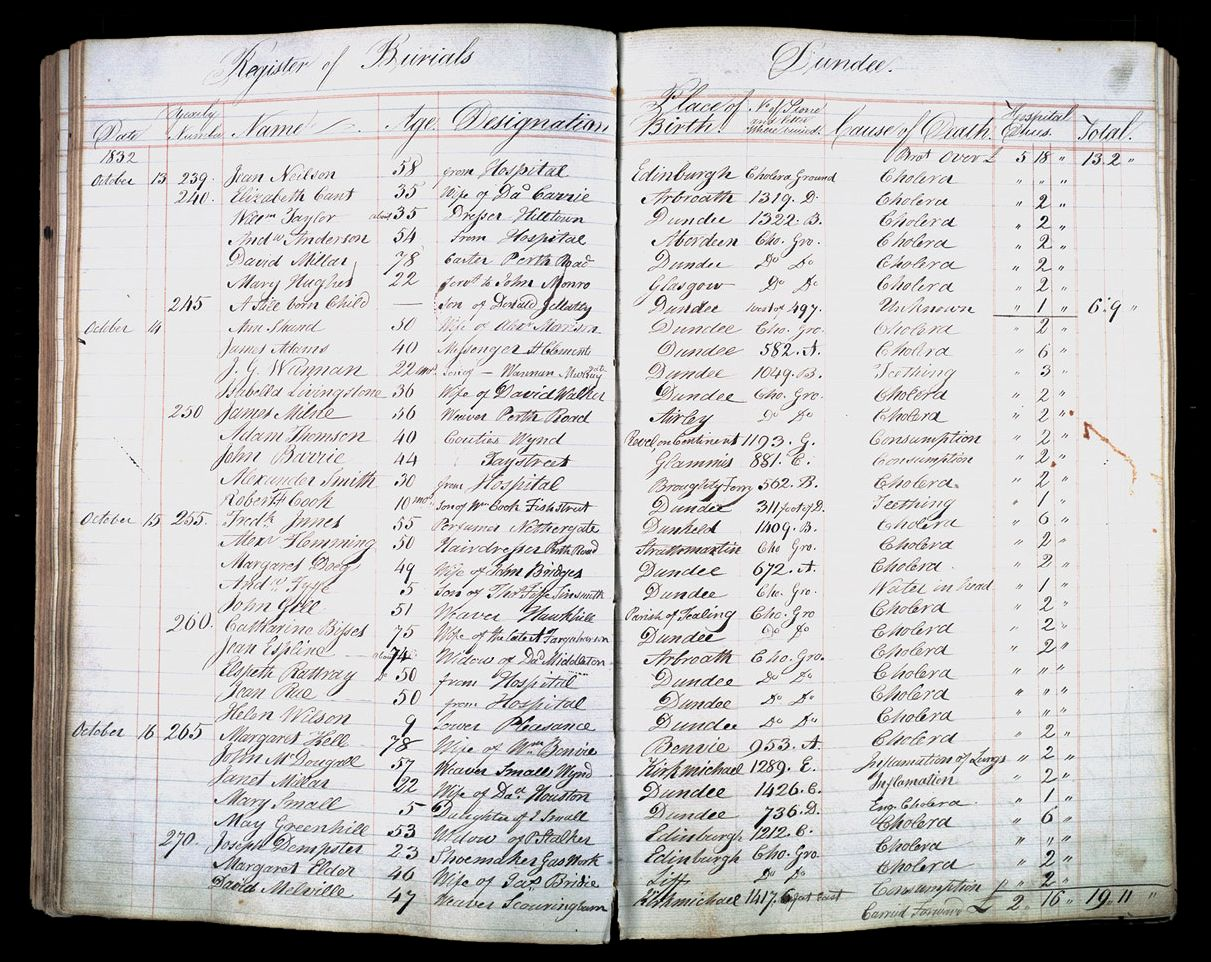 Register of Burials Dundee.
Date Yearly Number Name Age Designation Place of Birth No of Stone and Cause of Death. Hospital Dues. Total.
1832 Brot Over £ 5 18 " 13.2 "
October 13 239. Jean Neilson 58 from Hospital Edinburgh Cholera Ground Cholera " " "
240. Elizabeth Cant 35 Wife of Dd Carrie Arbroath 1319. D. Cholera " 2 "
Willm Taylor about 35 Dresser Hilltown Dundee 1322. B. Cholera " 2 "
Andw Anderson 54 from Hospital Aberdeen Cho. Gro. Cholera " 2 "
David Millar 78 Carter Perth Road Dundee Do Do Cholera " 2 "
Mary Hughes 22 Servt to John Monro Glasgow Do Do Cholera " 2 "
245 A Still born Child — Son of Donald Dundee west of 497. Unknown " 1 " 6.9 "
October 14 Ann Shand 50 Wife of Alexr Morrison Dundee Cho. Gro. Cholera " 2 "
James Adams 40 Messenger St Clement Dundee 582. A. Cholera " 6 "
J. G. Wannan 22 mos Son of — Wannan Dundee 1049. B. Teething " 3 "
Isabella Livingstone 36 Wife of David Walker Dundee Cho. Gro. Cholera " 2 "
250 James Milne 46 Weaver Perth Road Airley Do Do Cholera " 2 "
Adam Thomson 40 Couties Wynd Revel, on Continent 1193. G. Consumption " 2 "
John Barrie 44 Taystreet Glammis 881. E. Consumption " 2 "
Alexander Smith 30 from Hospital Broughty Ferry 562. B. Cholera " 2 "
Robert Cook 10 mos Son of Wm Cook Fish Street Dundee 311 foot of D. Teething " 1 "
October 15 255. Fredk Innes 55 Perfumer Nethergate Dunkeld 1409. B. Cholera " 6 "
Alexr Flemming 50 Hairdresser Perth Road Strathmartin Cho Gro. Cholera " 2 "
Margaret Doig 49 Wife of John Bridges Dundee 672. A Cholera " 2 "
Andw Fyffe 5 Son of Thos Fyffe Tinsmith Dundee Cho. Gro. Water in Head " 1 "
John 51 Weaver Hawkhill Parish of Tealing Cho. Gro Cholera " 2 "
260. Catharine Bisset 75 Wife of the late A Farquharson Dundee Do Do Cholera " 2 "
Jean Esplin about 74 Widow of Dd Middleton Arbroath Cho. Gro. Cholera " 2 "
Elspeth Rattray do 50 from Hospital Dundee Do Do Cholera " " "
Jean Rae 50 from Hospital Dundee Do Do Cholera " " "
Helen Wilson 9 Lower Pleasance Dundee Do Do Cholera " " "
October 16 265 Margaret Kell 78 Wife of Wm Benvie Benvie 953. A. Cholera " 2 "
John McDougall 57 Weaver Small Wynd Kirkmichael 1289. E. Inflamation of Lungs " 2 "
Janet Millar 22 Wife of Dd Houston Dundee 1426. C. Inflamation " 2 "
Mary Small 5 Daughter of J. Small Dundee 736. D. Eng. Cholera " 1 "
May Greenhill 53 Widow of P. Stalker Edinburgh 1212. C. Cholera " 6 "
270. Joseph Dempster 23 Shoemaker Gas Work Edinburgh Cho. Gro. Cholera " " "
Margaret Elder 40 Wife of Jas Bridie Liff Do Do Cholera " 2 "
David Melville 47 Weaver Scouringburn Kirkmichael 1417. 6 feet East Consumption " 2 "
Carried Forward £ 2 " 16 " 19. 11 "